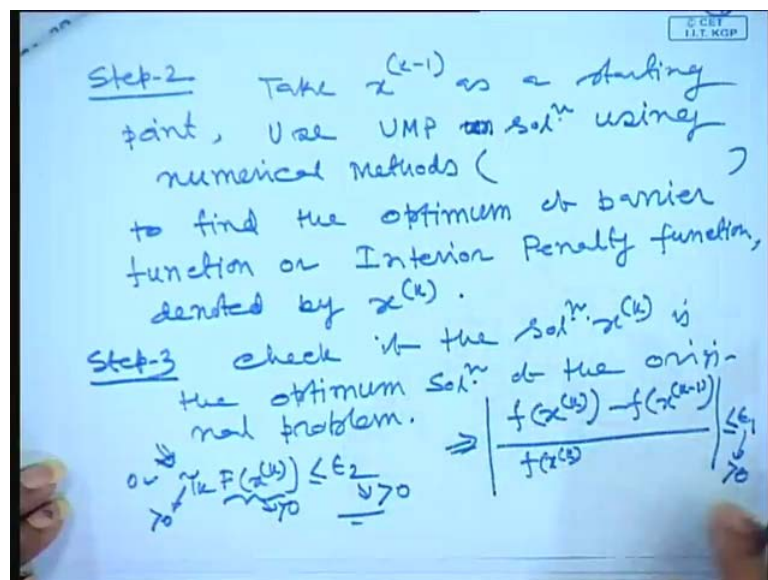 © CET
I.I.T. KGP
Step-2 Take x^(k-1) as a starting
point, Use UMP solⁿ using
numerical methods ( )
to find the optimum of barrier
function or Interior Penalty function,
denoted by x^(k).
Step-3 check if the solⁿ. x^(k) is
the optimum solⁿ. of the origi-
nal problem. ⇒ | f(x^(k)) - f(x^(k-1)) / f(x^(k)) | ≤ ϵ₁
>0
or r_k F(x^(k)) ≤ ϵ₂
>0 >0 >0